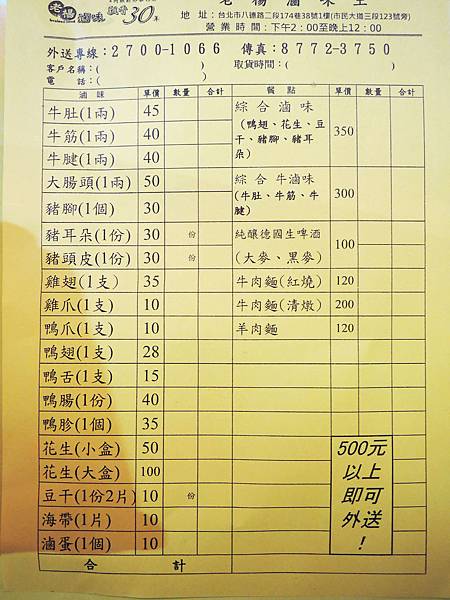 老楊滷味王
老楊
滷味
飄香30年
地 址：台北市八德路二段174巷38號1樓(市民大道三段123號旁)
營 業 時 間：下午2：00至晚上12：00
外送專線：2700-1066 傳真：8772-3750
客戶名稱：( ) 取貨時間：( )
電 話：( )
滷 味 單價 數量 合計 餐 點 單價 數量 合計
牛肚(1兩) 45 綜合滷味
牛筋(1兩) 40 (鴨翅、花生、豆干、豬腳、豬耳朵) 350
牛腱(1兩) 40
大腸頭(1兩) 50 綜合牛滷味
豬腳(1個) 30 (牛肚、牛筋、牛腱) 300
豬耳朵(1份) 30 份 純釀德國生啤酒
豬頭皮(1份) 30 份 (大麥、黑麥) 100
雞翅(1支) 35 牛肉麵(紅燒) 120
雞爪(1支) 10 牛肉麵(清燉) 200
鴨爪(1支) 10 羊肉麵 120
鴨翅(1支) 28
鴨舌(1支) 15
鴨腸(1份) 40
鴨胗(1個) 35
花生(小盒) 50
花生(大盒) 100
豆干(1份2片) 10 份
海帶(1片) 10
滷蛋(1個) 10
合 計
500元
以上
即可
外送
！